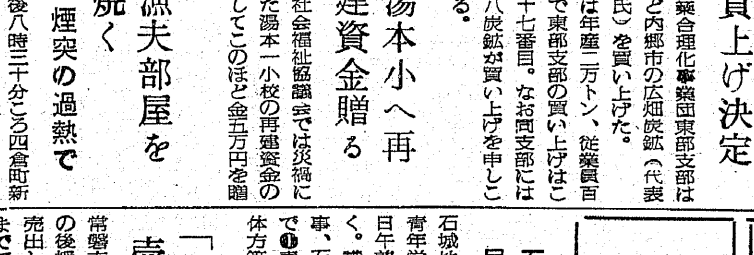 買上げ決定
業合理化事業団東部支部は
ど内郷市の広畑炭鉱（代表
氏）を買い上げた。
は年産二万トン、従業員百
で東部支部の買い上げはこ
十七番目。なお同支部には
八炭鉱が買い上げを申しこ
る。
湯本小へ再
建資金贈る
社会福祉協議会では災禍に
た湯本一小校の再建資金の
してこのほど金五万円を贈
漁夫部屋を
焼く
煙突の過熱で
後八時三十分ころ四倉町新
石城地
青年学
日午
く。
事、石
で
体方
常磐
の後援
売出
まで